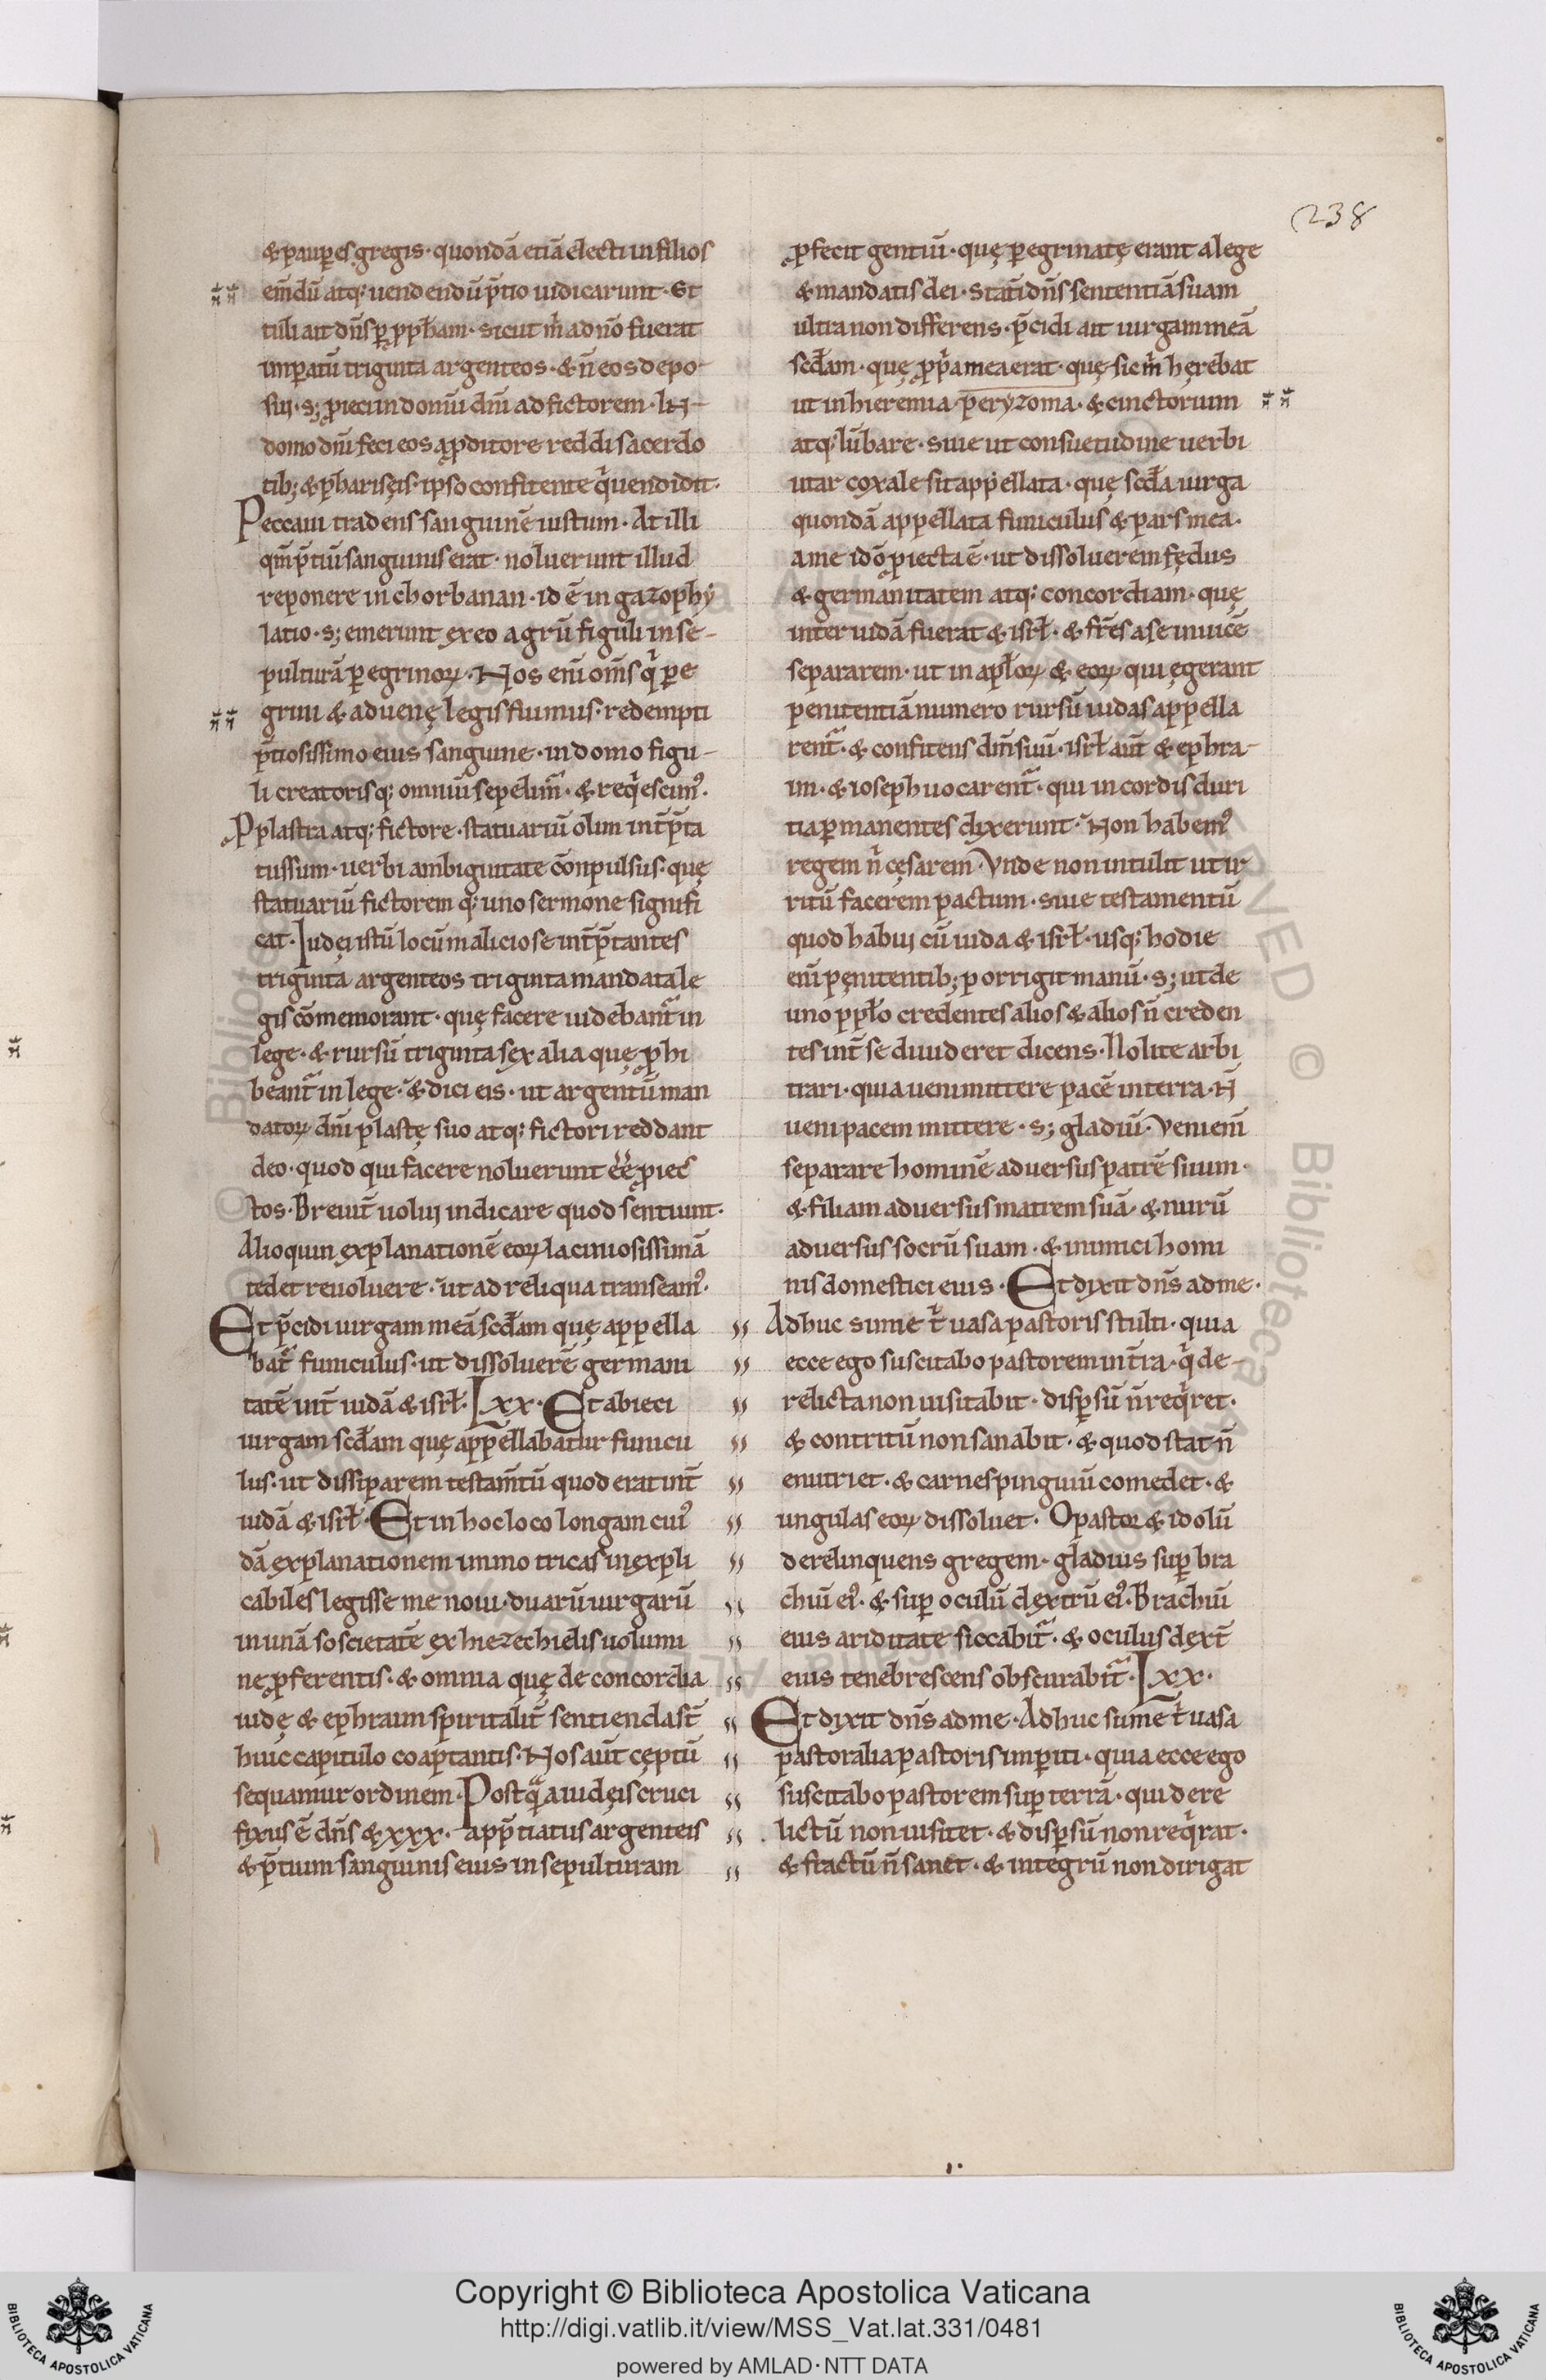 238
&paup̱es gregis· quondā etiā electi in filios
em̄dū atq; uendendū p̄tio iudicarunt· Et
tuli ait dn̄s ꝑ ꝓpħam· sicut m̄ adn̄o fuerat
imꝑatū triginta argenteos· & n̄ eos depo
sui· s; ꝓieci in domū dn̄i ad fictorem· IN
domo dn̄i feci eos a ꝓditore reddi sacerdo
tib; & pharisęis· ipso confitente qͥ uendidit·
Peccaui tradens sanguinē iustum· At illi
qm̄ p̄tiū sanguinis erat· noluerunt illud
reponere in chorbanan· id ē in gazophy
latio· s; emerunt ex eo agrū figuli in se-
pulturā ꝑegrinoꝝ· Nos eni om̄s qͥ ꝑe
grini & aduenę legis fuimus· redempti
p̄tiosissimo eius sanguine· in domo figu-
li creatorisq; omniū sepelim̄· & reqͥescim᾽·
Ꝓ plastra atq; fictore· statuariū olim int̄p̄ta
tus sum· uerbi ambiguitate cōnpulsus· quę
statuariū fictorem q; uno sermone signifi
cat· Iudęi istū locū maliciose int̄p̄tantes
triginta argenteos triginta mandata le
gis cōmemorant· quę facere iudebant̄ in
lege· & rursū triginta sex alia quę ꝓhi
beant̄ in lege· & dici eis· ut argentū man
datoꝝ dn̄i plastę suo atq; fictori reddant
deo· quod qui facere noluerunt ēē ꝓiec
tos· Breuit̄ uolui indicare quod sentiunt·
Alioquin explanationē eoꝝ laciniosissimā
tedet reuoluere· ut ad reliqua transeam᾽·
Et p̄cidi uirgam meā scdam quę appella
bat̄ funiculus· ut dissoluerē germani
tatē int̄ iudā & isrł· Lxx· Et abieci
uirgam scdam quę appellabatur funicu
lus· ut dissiparem testam̄tū quod erat int̄
iudā & isrł· Et in hoc loco longam cui᾽
dā explanationem immo tricas inexpli
cabiles legisse me noui· duarū uirgarū
in unā soscietatē ex hiezechielis uolumi
ne ꝓferentis· & omnia quę de concordia
iudę & ephraim spiritalit̄ sentienda st̄
huic capitulo coaptantis· Nos aut̄ cęptū
sequamur ordinem· Postqͣ a iudęis cruci
fixus ē dn̄s & xxx· app̄tiatus argenteis
& p̄tium sanguinis eius in sepulturam
ꝓfecit gentiū· quę ꝑegrinatę erant a lege
& mandatis dei· statī dn̄s sententiā suam
ultra non differens· p̄cidi ait uirgam meā
scdam· quę ꝓpͥa mea erat· quę sic m̄ hęrebat
ut in hieremia ꝑeryzoma· & cinctorium
atq; lūbare· siue ut consuetudine uerbi
utar coxale sit appellata· quę scda uirga
quondā appellata funiculus & pars mea·
a me idō ꝓiecta ē· ut dissoluerem fędus
& germanitatem atq; concordiam· quę
inter iudā fuerat & isrł· & fr̄es a se inuicē
separarem· ut in apłoꝝ & eoꝝ qui egerant
penitentiā numero rursū iudas appella
rent̄· & confitens dn̄m suū· isrł aut̄ & ephra-
im· & ioseph uocarent̄· qui in cordis duri
tia ꝑmanentes dixerunt· Non habem᾽
regem n̄ cęsarem· Vnde non intulit ut ir
ritū facerem pactum· siue testamentū
quod habui cū iuda & isrł· usq; hodie
eni pęnitentib; porrigit manū· s; ut de
uno ppło credentes alios & alios n̄ creden
tes int̄ se diuideret dicens· Nolite arbi
trari· quia ueni mittere pacē in terra· N̄
ueni pacem mittere· s; gladiū· Veni eni
separare hominē aduersus patrē suum·
& filiam aduersus matrem suā· & nurū
aduersus socrū suam· & inimici homi
nis domestici eius· Et dyxit dn̄s ad me·
Adhuc sume t̄ uasa pastoris stulti· quia
ecce ego suscitabo pastorem in t̄ra· qͥ de-
relicta non uisitabit· disꝑsū n̄ reqͥret·
& contritū non sanabit· & quod stat n̄
enutriet· & carnes pinguiū comedet· &
ungulas eoꝝ dissoluet· O pastor & idolū
derelinquens gregem· gladius suꝑ bra
chiū ei᾽· & suꝑ oculū dextrū ei᾽· Brachiū
eius ariditate siccabit̄· & oculus dext̄
eius tenebrescens obscurabit̄· Lxx·
Et dyxit dn̄s ad me· Adhuc sume t̄ uasa
pastoralia pastoris imꝑiti· quia ecce ego
suscitabo pastorem suꝑ terrā· qui dere
lictū non uisitet· & disꝑsū non reqͥrat·
& fractū n̄ sanet· & integrū non dirigat
Copyright © Biblioteca Apostolica Vaticana
http://digi.vatlib.it/view/MSS_Vat.lat.331/0481
powered by AMLAD·NTT DATA